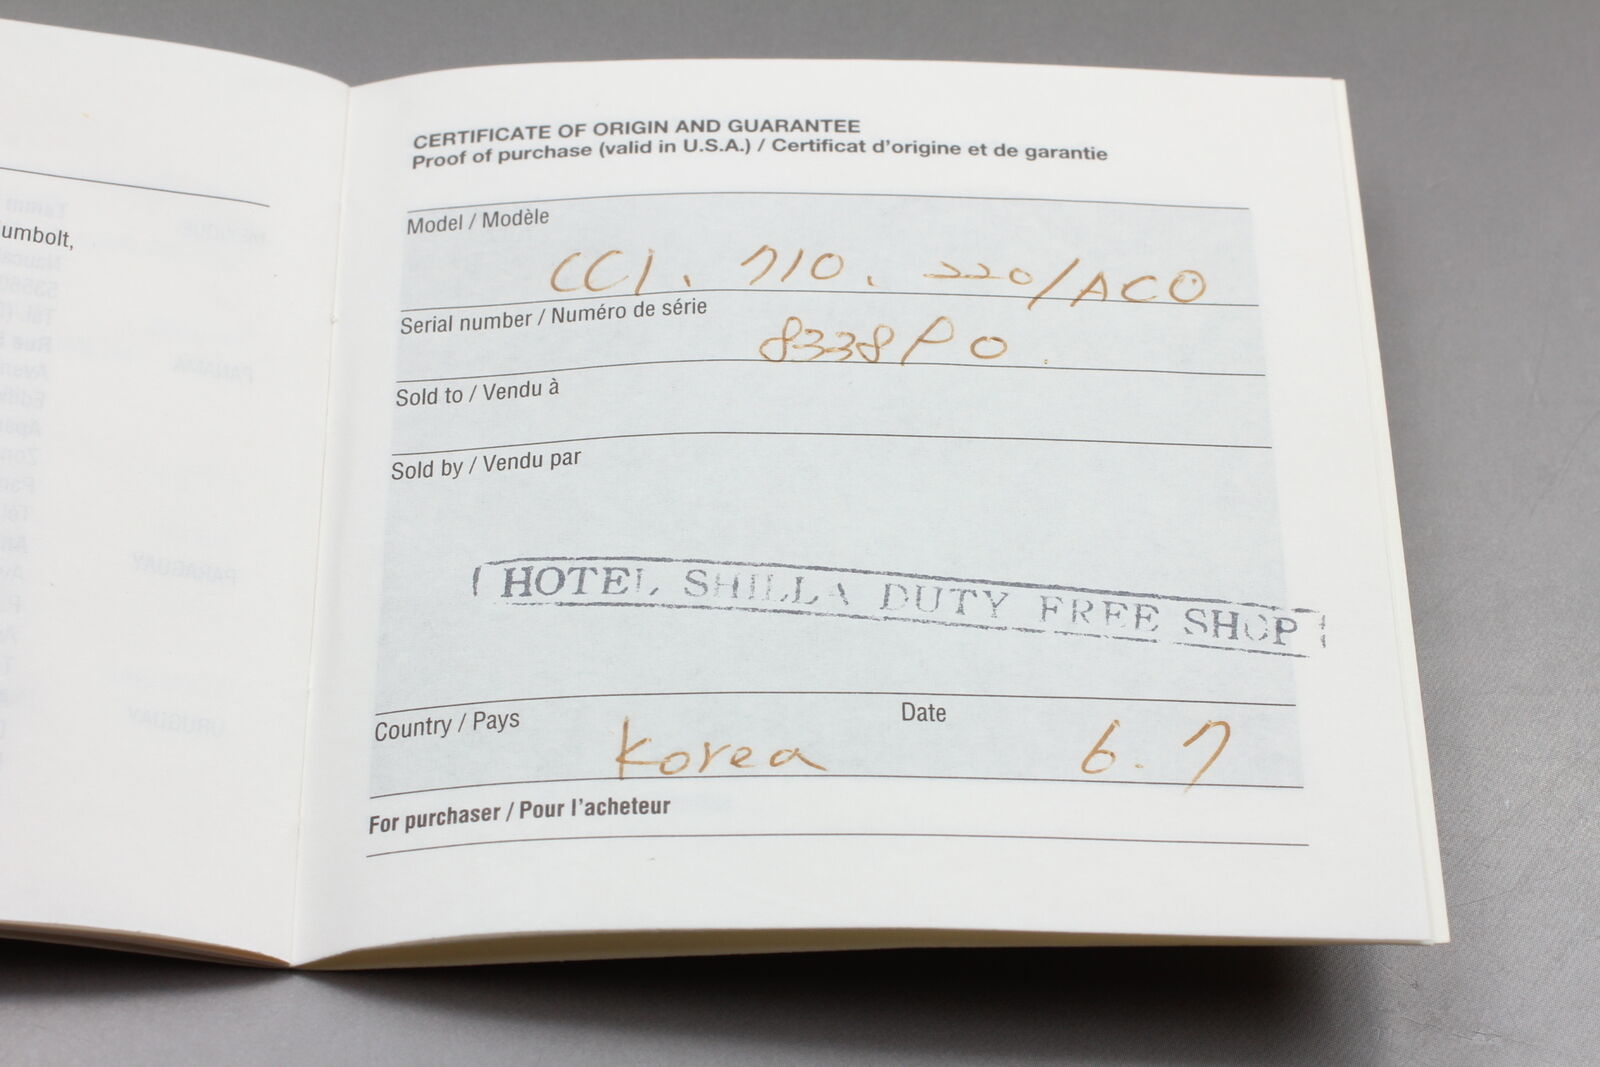 umbolt,
CERTIFICATE OF ORIGIN AND GUARANTEE
Proof of purchase (valid in U.S.A.) / Certificat d'origine et de garantie
Model / Modèle
CC1. 710. 220/ACO
Serial number / Numéro de série
8338PO.
Sold to / Vendu à
Sold by / Vendu par
HOTEL SHILLA DUTY FREE SHOP
Country / Pays
Korea
Date
6. 7
For purchaser / Pour l'acheteur